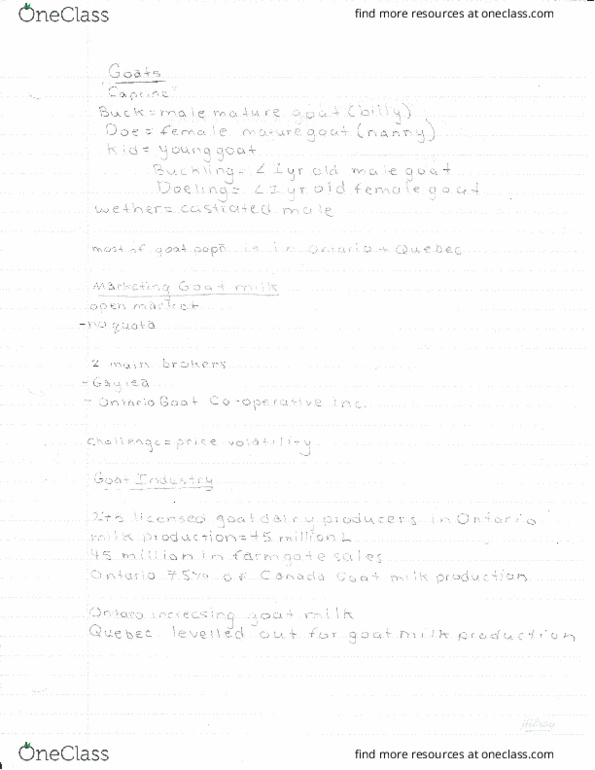 OneClass
find more resources at oneclass.com
Goats
"Caprine"
Buck = male mature goat (billy)
Doe = female mature goat (nanny)
Kid = young goat
Buckling = < 1 yr old male goat
Doeling = < 1 yr old female goat
wether = castrated male
most of goat popn is in Ontario + Quebec
Marketing Goat milk
open market
- no quota
2 main brokers
- Gaylea
- Ontario Goat Co-operative inc.
challenge = price volatility
Goat Industry
licensed goat dairy producers in Ontario
milk production = 45 million L
45 million in farmgate sales
Ontario 75% of Canada Goat milk production
Ontaro increasing goat milk
Quebec levelled out for goat milk production
Hilroy
OneClass
find more resources at oneclass.com